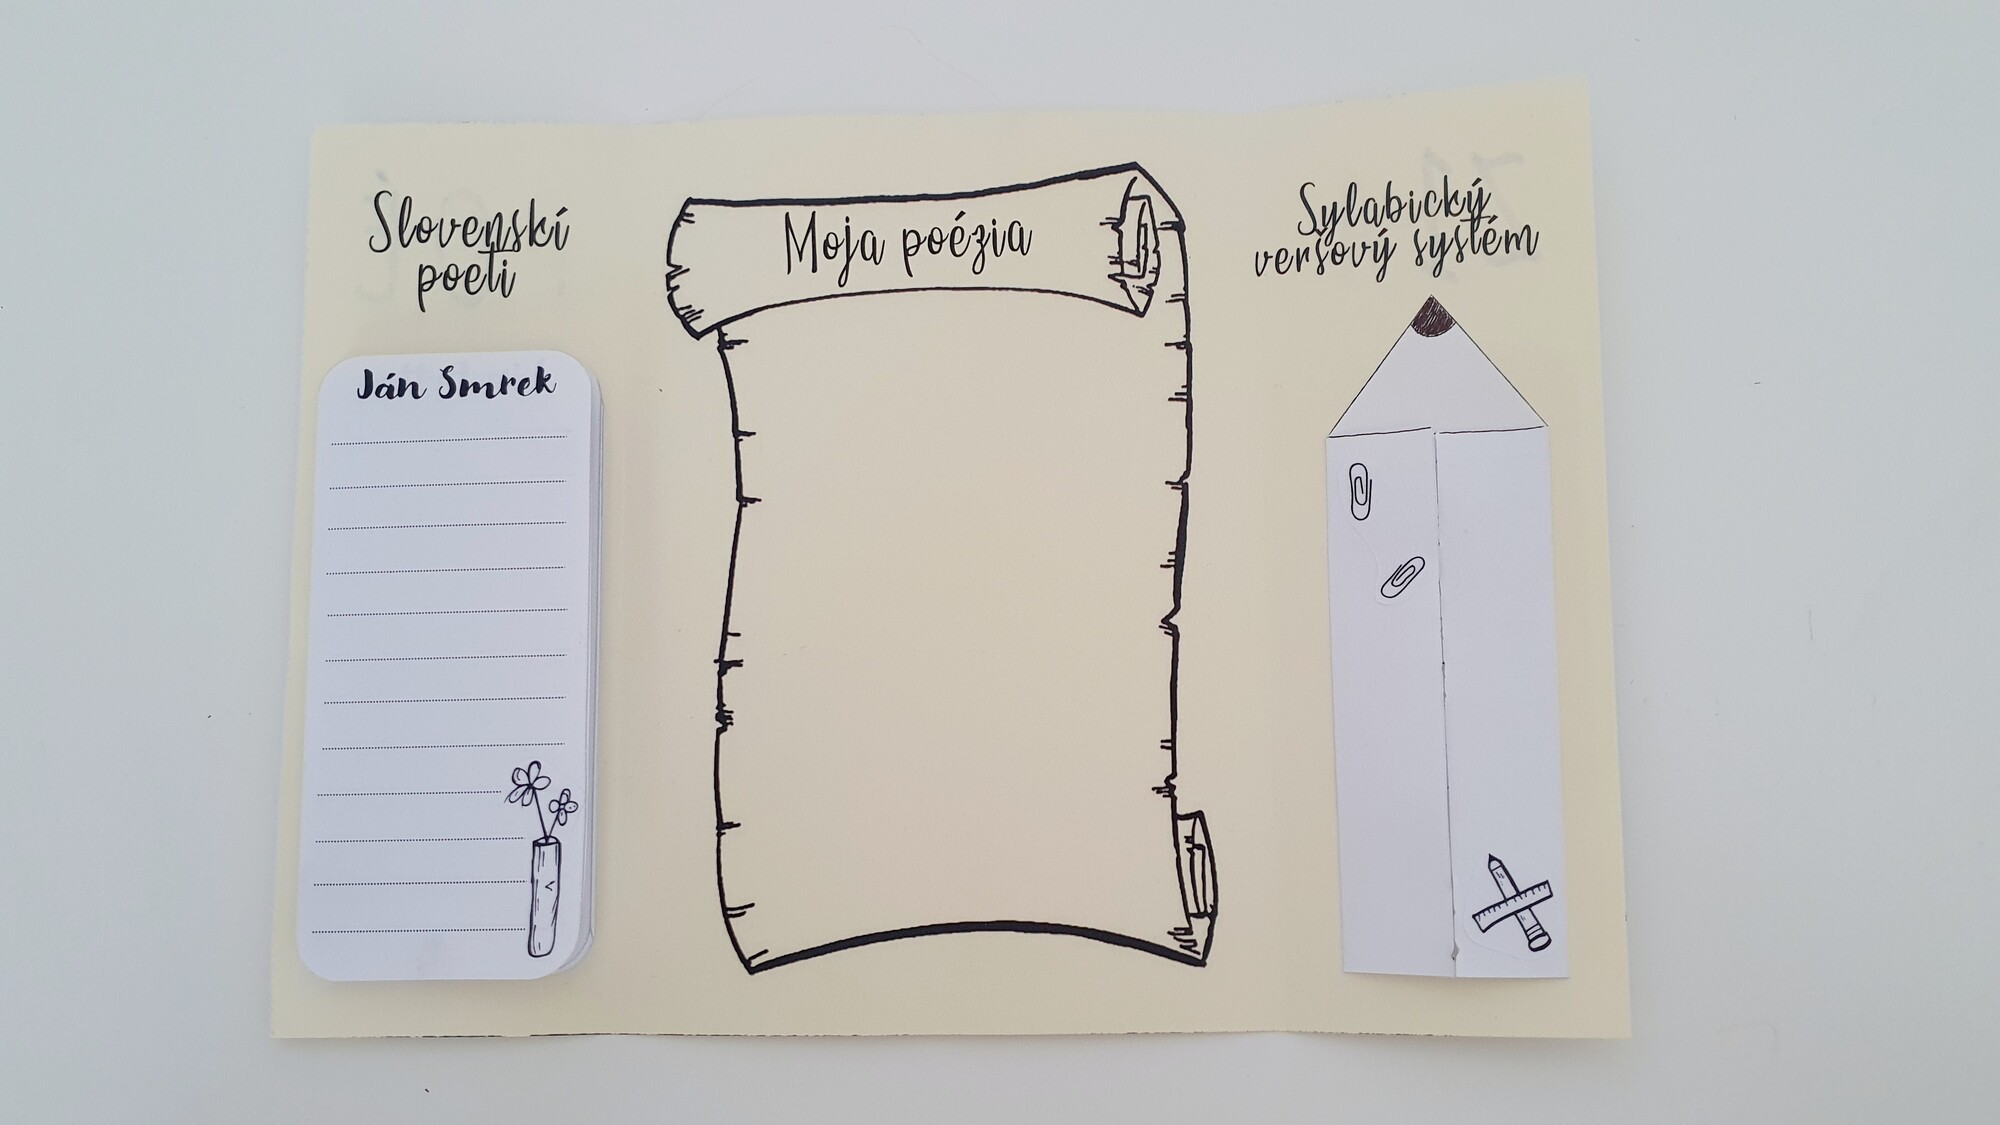 Slovenskí
poeti
Ján Smrek
Moja poézia
Sylabický
veršový systém